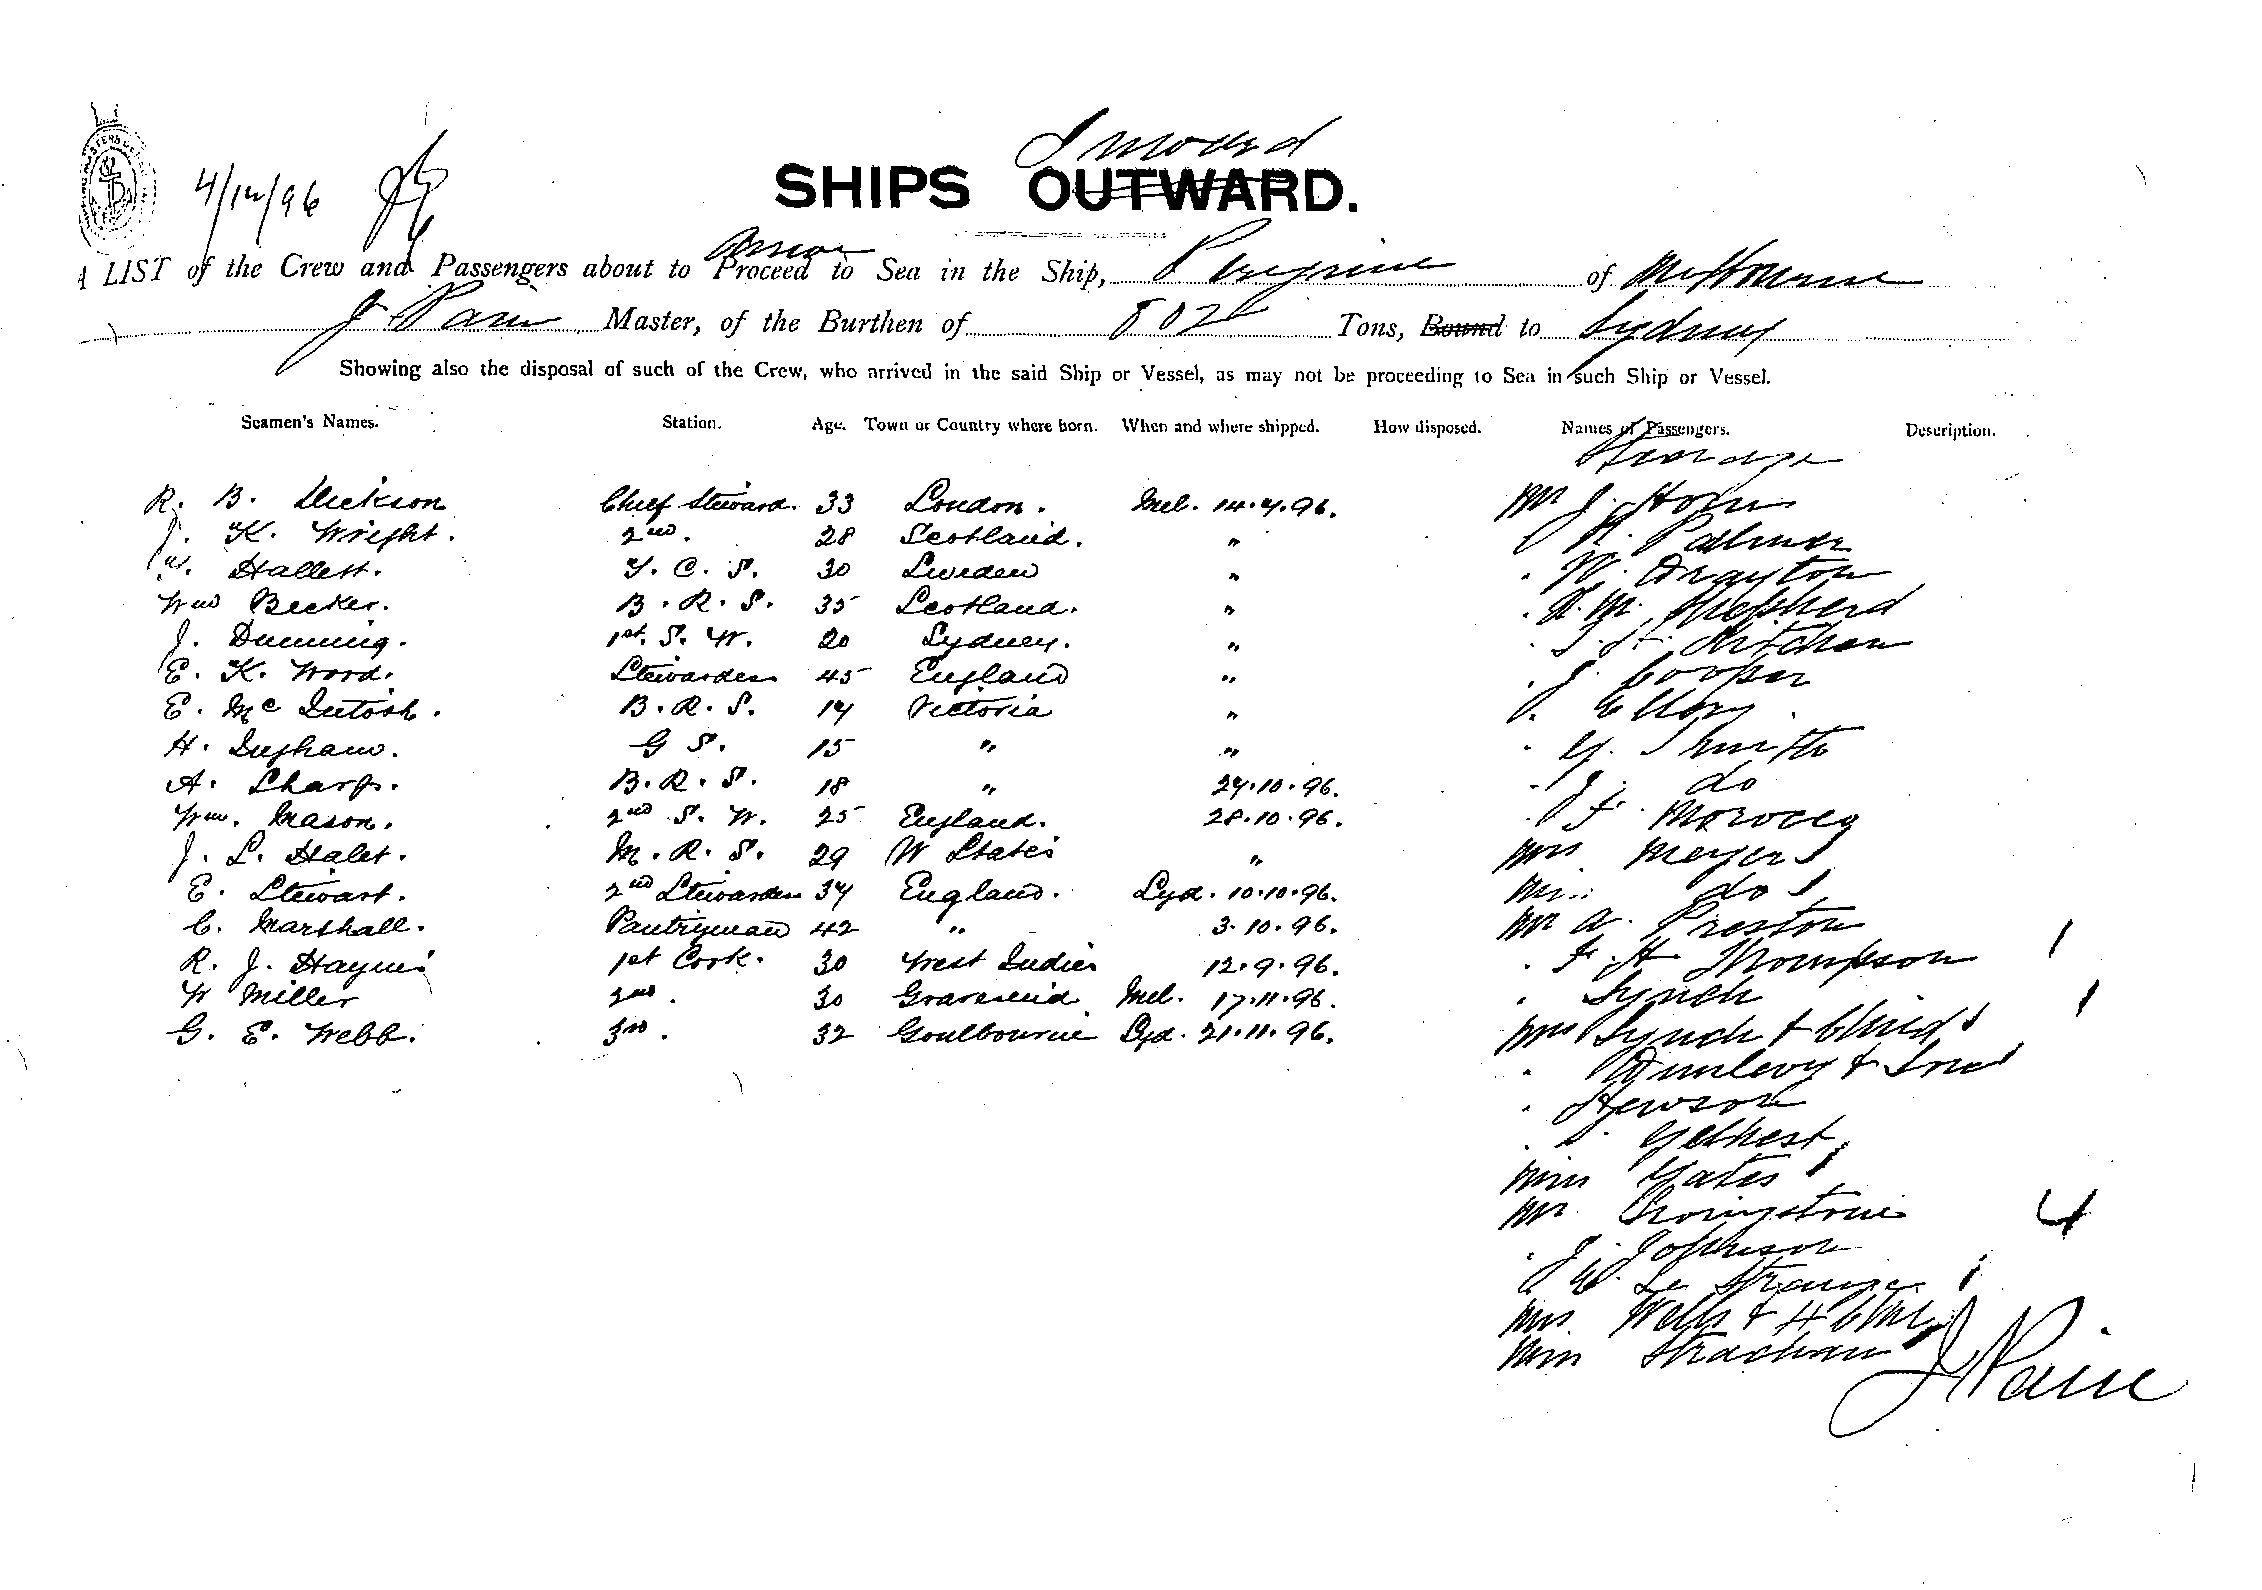 Inward
4/12/96
SHIPS OUTWARD.
A LIST of the Crew and Passengers about to Proceed to Sea in the Ship, Peregrine of Melbourne
J Pain Master, of the Burthen of 802 Tons, Bound to Sydney
Showing also the disposal of such of the Crew, who arrived in the said Ship or Vessel, as may not be proceeding to Sea in such Ship or Vessel.
Seamen's Names. Station. Age. Town or Country where born. When and where shipped. How disposed. Names of Passengers. Description.
Steerage
R. B. Dickson Chief Steward. 33 London. Mel. 14.4.96. Mr J. Horn
J. K. Wright. 2nd. 28 Scotland. " R. Palmer
Hallett. F. C. S. 30 Sweden " . W. Drayton
Wm Becker. B. R. S. 35 Scotland. " . Shepherd
J. Dunning. 1st. S. W. 20 Sydney. " . Kitchen
E. K. Wood. Stewardess 45 England " . J. Cooper
E. Mc Intosh. B. R. S. 17 Victoria " Ellory
H. Ingham. G S. 15 " " . G. Smith
A. Sharp. B. R. S. 18 " 24.10.96. . J. do
Wm. Mason. 2nd S. W. 25 England. 28.10.96. . F.
J. L. Halet. M. R. S. 29 W States " Mrs Meyers
E. Stewart. 2nd Stewardess 34 England. Syd. 10.10.96. do
C. Marshall. Pantryman 42 " 3.10.96. Mr A. Preston
R. J. Haynes 1st Cook. 30 West Indies 12.9.96. . F. H Thompson 1
W Miller 2nd. 30 Gravesend Mel. 17.11.96. . Lynch 1
G. E. Webb. 3rd. 32 Goulbourne Syd. 21.11.96. Mrs Lynch + Child
. Dunlevy +
. Hewson
.
Miss Yates
Mr. Livingstone 4
. J. Johnson
W. Le Strange
Mrs. Wells + 4 Chil
Miss Strachan
J Pain